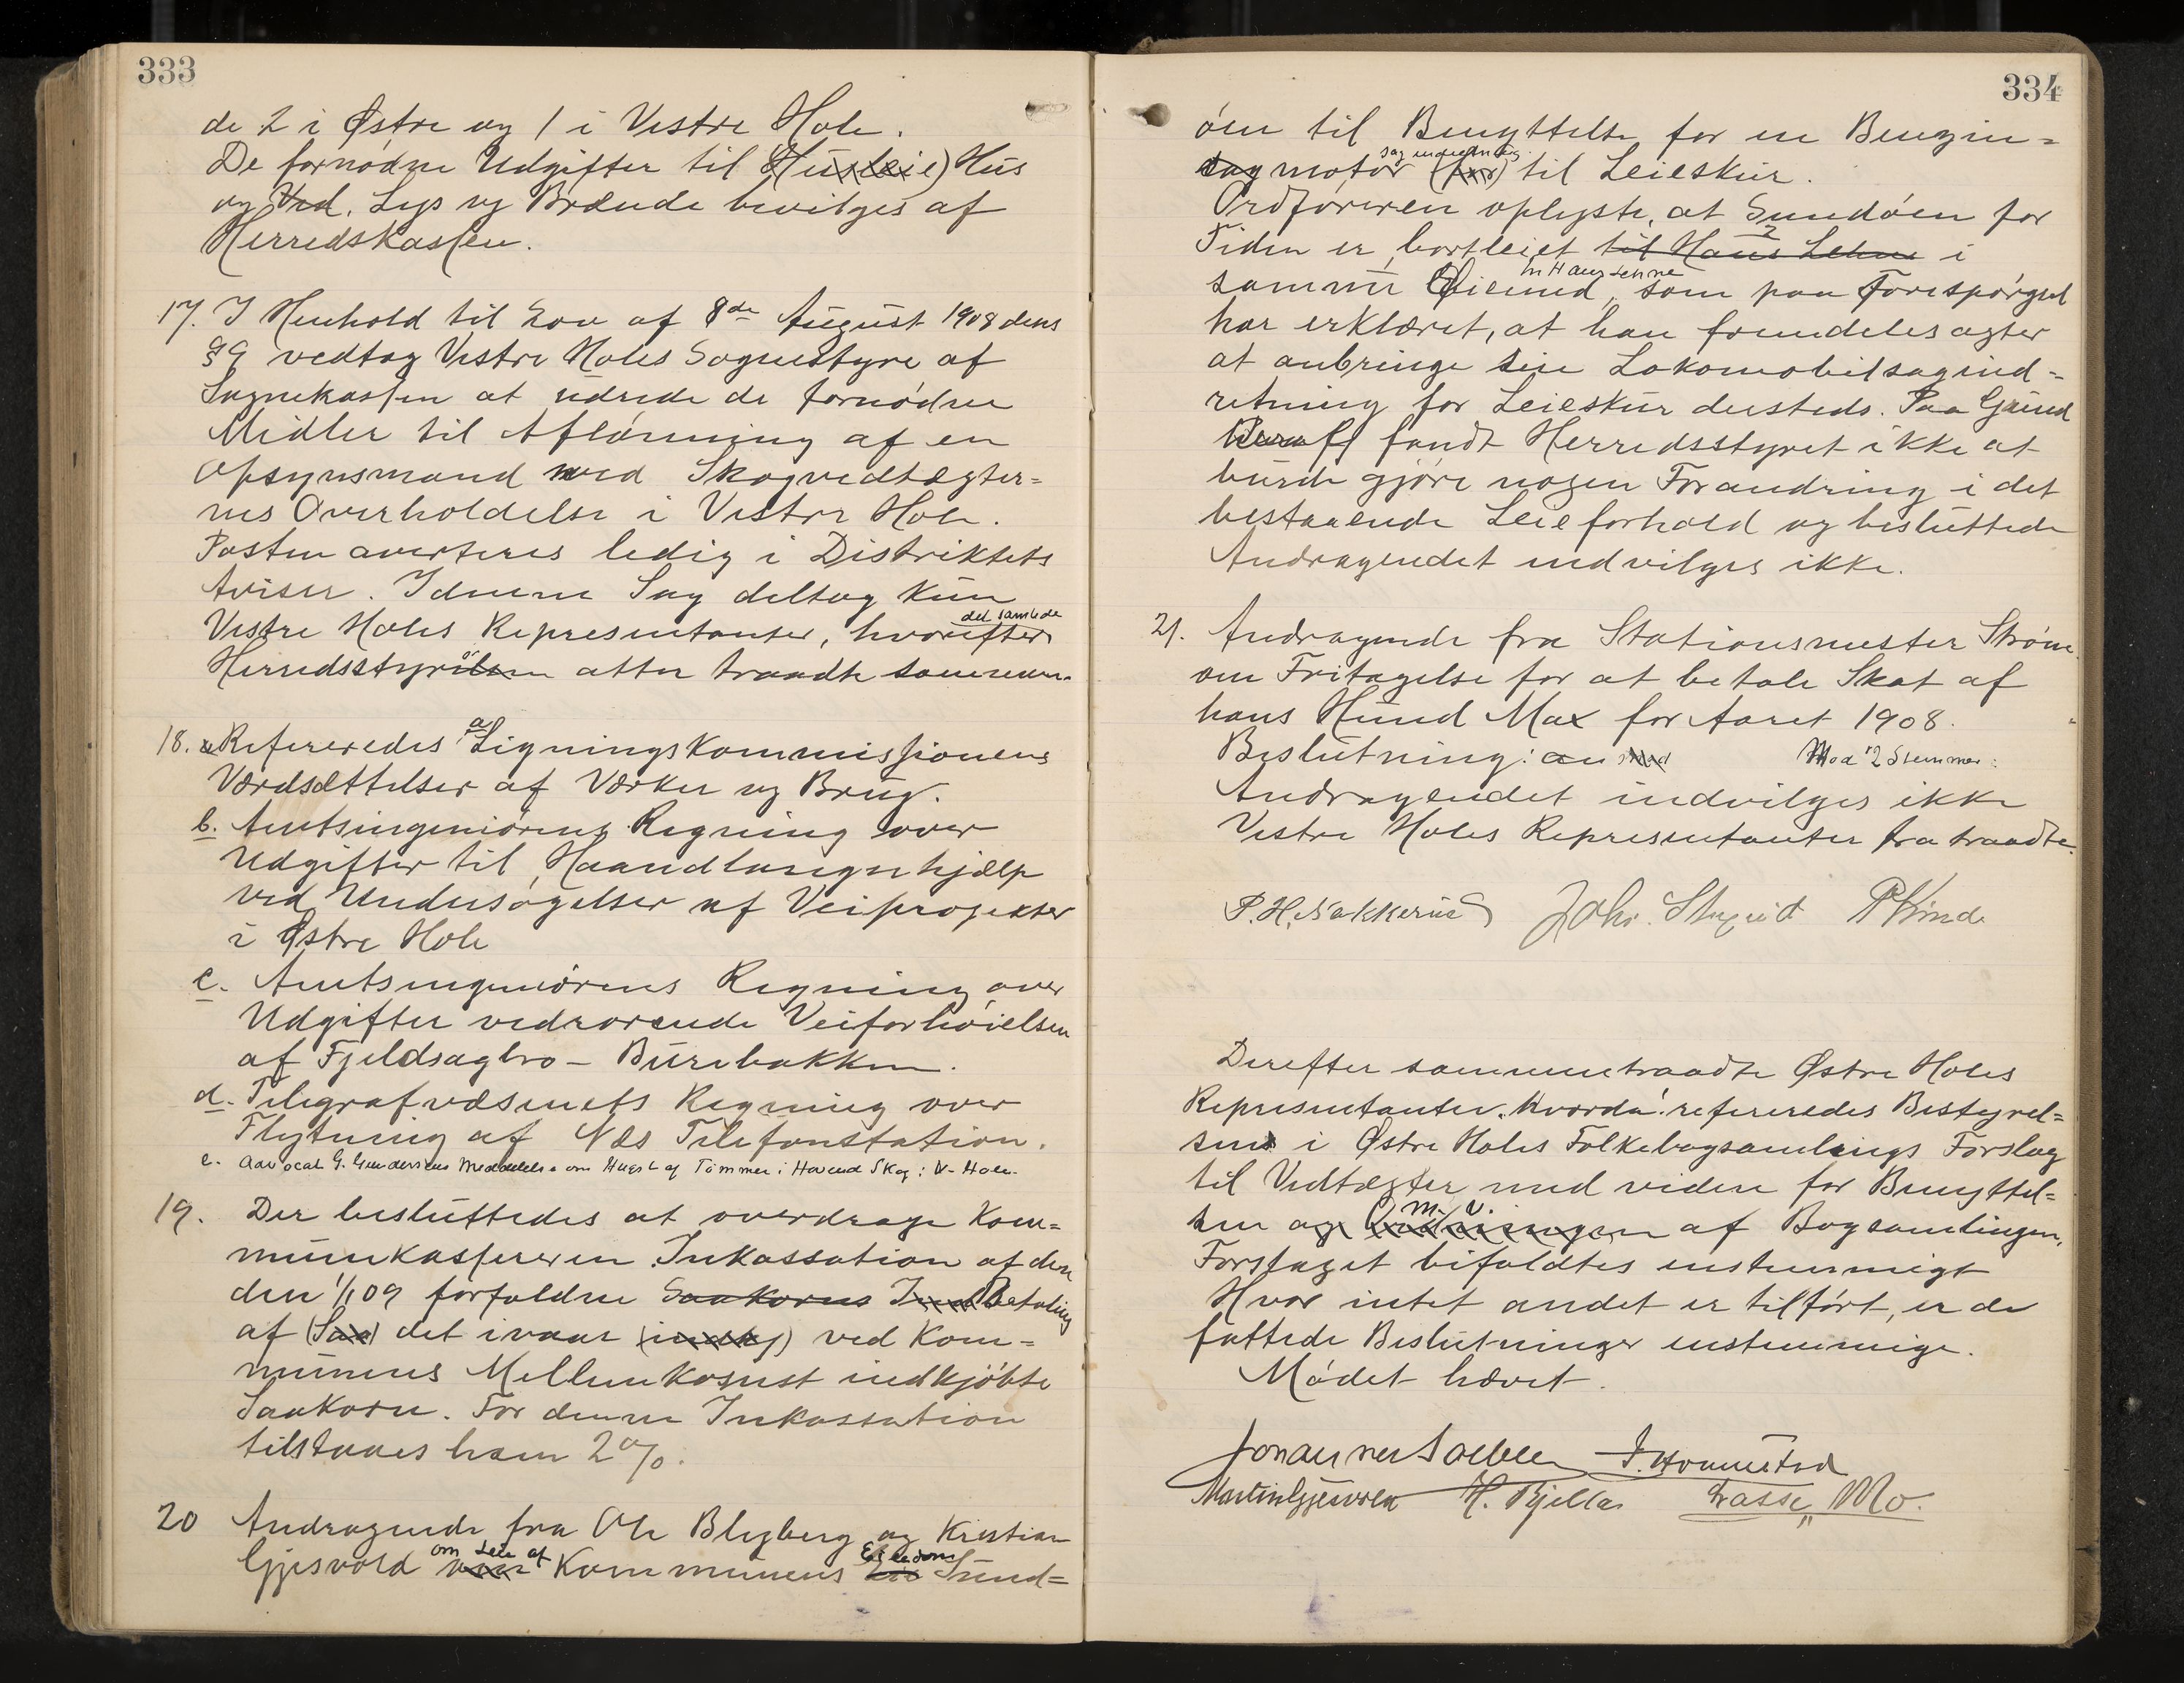 333
de 2 i Østre og 1 i Vestre Hole.
De fornødne Udgifter til (Husleie) Hus
og Ved. Lys og Brænde bevilges af
Herredskassen.
17. I Henhold til Lov af 8de August 1908 dens
§9 vedtog Vestre Holes Sognestyre af
Sognekassen at udrede de fornødne
Midler til Aflønning af en
Opsynsmand ved Skogvedtægter=
nes Overholdelse i Vestre Hole.
Posten averteres ledig i Distriktets
Aviser. I denne Sag deltog kun
Vestre Holes Repræsentanter, hvorefter
det samlede
Herredsstyre atter traadte sammen.
18. Refereredes a Ligningskommissionens
Værdsættelser af Værker og Brug.
b. Amtsingeniørens Regning over
Udgifter til Haandlangerhjælp
ved Undersøgelser af Veiprojekter
i Østre Hole
c. Amtsingeniørens Regning over
Udgifter vedrørende Veiforhøielsen
af Fjeldsagbro - Burebakken.
d. Telegrafvæsenets Regning over
Flytning af Næs Telefonstation.
e. Advocat G. Gundersens Meddelelse om Hugst af Tømmer i Havend Skog i V. Hole.
19. Der besluttedes at overdrage Kom=
munekassereren Inkassation af den
den 1/1 09 forfaldne Saakorns Betaling
af (Saa) det ivaar ved Kom=
munens Mellemkomst indkjøbte
Saakorn. For denne Inkassation
tilstaaes ham 2%.
20 Andragende fra Ole Blyberg og Kristian
om Leie af Eiendom
Gjesvold Kommunens Sund=
334
øen til Benyttelse for en Benzin=
sagindretning
sag motor (for) til Leieskur.
Ordføreren oplyste, at Sundøen for
Tiden er bortleiet til Hans Lehne i
til Hans Lehne
samme Øiemed, som paa Forespørgsel
har erklæret, at han fremdeles agter
at anbringe sin Lokomobilsagind=
retning for Leieskur dersteds. Paa Grund
heraf fandt Herredsstyret ikke at
burde gjøre nogen Forandring i det
bestaaende Leieforhold og besluttede
Andragendet indvilges ikke.
21. Andragende fra Stationsmester Strøm
om Fritagelse for at betale Skat af
hans Hund Max for Aaret 1908.
Beslutning: Mod 2 Stemmer:
Andragendet indvilges ikke
Vestre Holes Repræsentanter fratraadte.
P. H. Nakkerud Johs. Stuveseid P Vinde
Derefter sammentraadte Østre Holes
Repræsentanter. Hvorda refereredes Bestyrel=
sens i Østre Holes Folkebogsamlings Forslag
til Vedtægter med videre for Benyttel=
m. v.
sen og af Bogsamlingen.
Forslaget bifaldtes enstemmigt
Hvor intet andet er tilført, er de
fattede Beslutninger enstemmige.
Mødet hævet.
Johannes Solberg J. Hornnestad
Martin Gjesvold H. Bjella Lasse Mo.